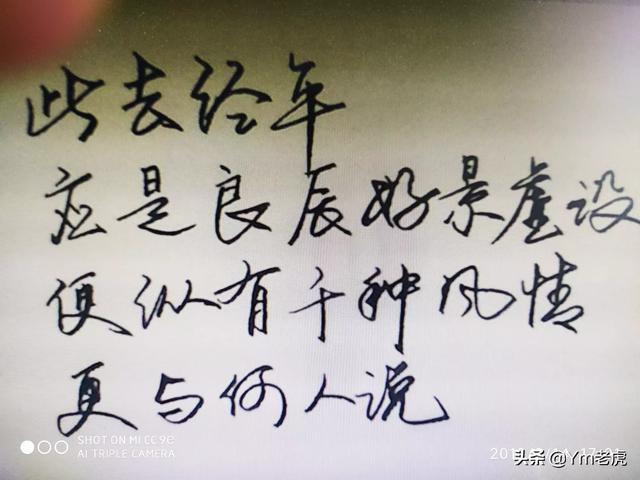 此去经年
应是良辰好景虚设
便纵有千种风情
更与何人说
SHOT ON MI CC 9e
AI TRIPLE CAMERA
头条 @Ym老虎